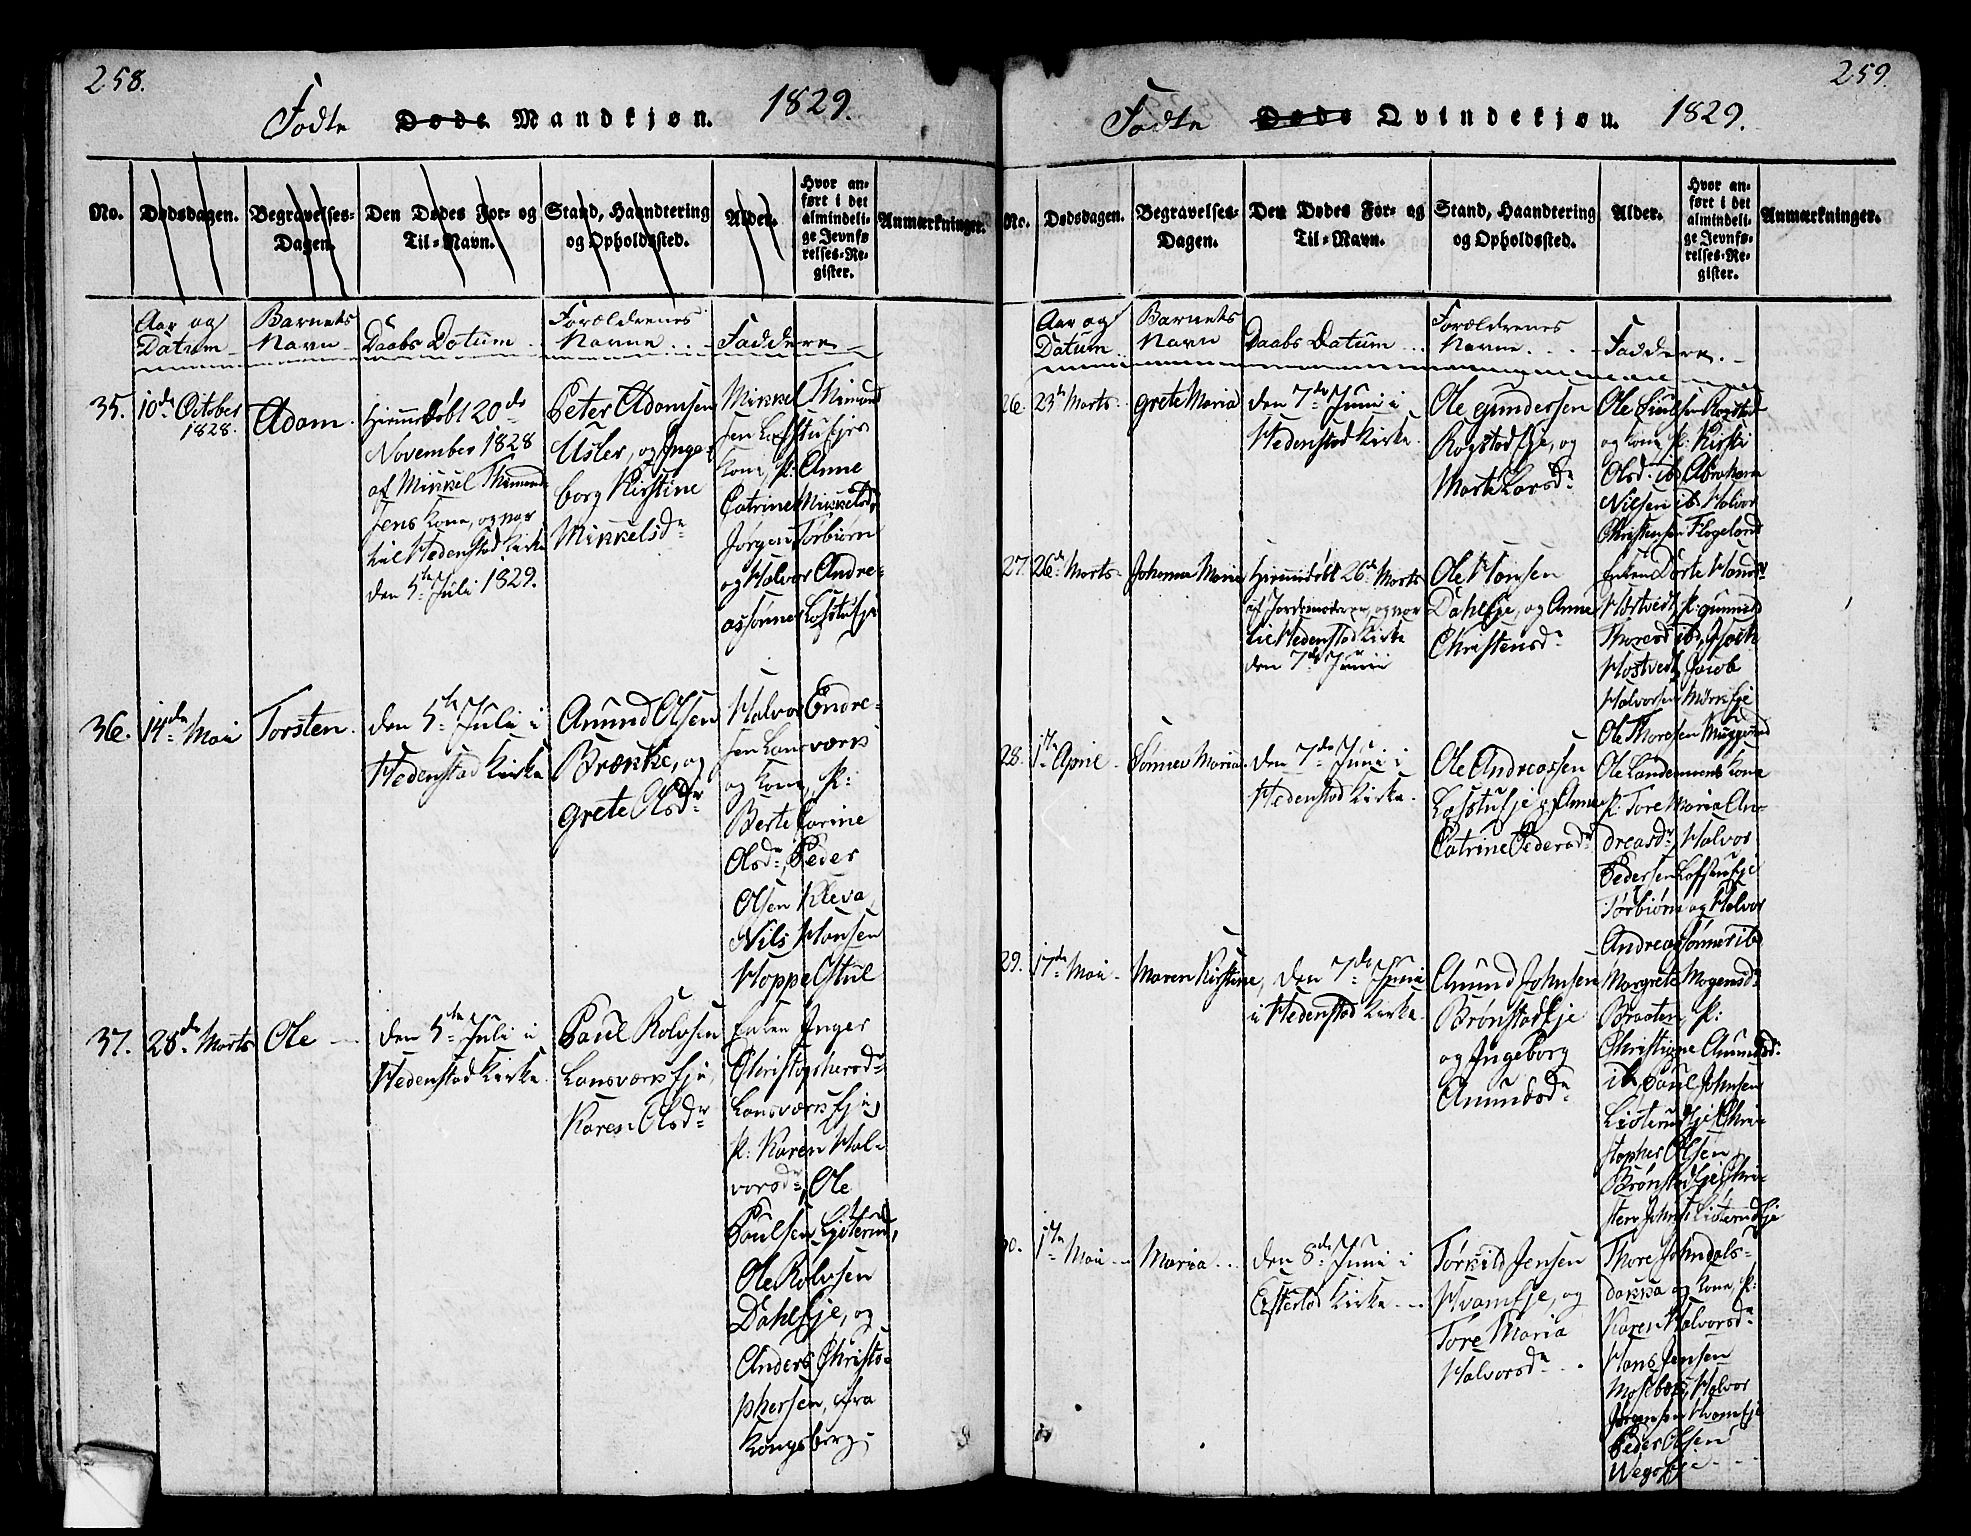 258.
Fødte Døde Mandkjøn. 1829.
No. Dødsdagen. Begravelses-Dagen. Den Dødes For- og Til-Navn. Stand, Haandtering og Opholdssted. Alder. Hvor anført i det almindelige Jevnførelses-Register. Anmærkninger.
Aar og Datum
Barnets Navn
Daabs Datum
Forældrenes Navne
Faddere
35.
10de October
1828.
Adam.
Hjemmedøbt 20de
November 1828
af Mikkel
Jens Kone, og var
til Hedenstad Kirke
den 5te Juli 1829.
Peter Adamsen
Asler, og Inge-
borg Kirstine
Mikkelsdr
Mikkel
sen Løfstufjer
Kone, p: Anne
Catrine Mikkelsdr
Jørgen, Torbiørn
og Halvor Andre-
assønner Løfstufje
36.
14de Mai
Torsten.
den 5te Juli i
Hedenstad Kirke
Amund Olsen
Brænke, og
Grete Olsdr
Halvor Endre-
sen Lansværk
og Kone, p:
Berte Carine
Olsdr, Peder
Olsen Kleva,
Nils Hansen
Hoppestul
37.
28de Marts
Ole
den 5te Juli i
Hedenstad Kirke.
Paul Rolvsen
Lansværkseje,
Karen Olsdr
Enken Inger
Christophersdr
Lansværkseje,
p: Karen Hal-
vorsdr, Ole
Paulsen Listerud,
Ole Rolvsen
Dahleje, og
Anders Christo-
phersen, fra
Kongsberg,
259.
Fødte Døde Qvindekjøn. 1829.
No. Dødsdagen. Begravelses-Dagen. Den Dødes For- og Til-Navn. Stand, Haandtering og Opholdssted. Alder. Hvor anført i det almindelige Jevnførelses-Register. Anmærkninger.
Aar og Datum
Barnets Navn
Daabs Datum
Forældrenes Navne
Faddere.
26.
23de Marts
Grete Maria
den 7de Juni i
Hedenstad Kirke.
Ole Gundersen
Rogstadeje, og
Marte Larsdr
Ole Rogstad
og Kone, p: Kirsti
Olsd. ib. Abraham
Nielsen ib. Halvor
Christensen Flogeland
27.
26de Marts
Johanne Maria
Hjemmedøbt 26de Marts
af Jordemoderen, og var
til Hedenstad Kirke
den 7de Junii
Ole Hansen
Dahleje, og Anne
Christensdr
Enken Dorte Hansdr
Hostvedt, p: Gunnild
Thoresd ib,
Hostvedt, Jacob
Halvorsen
Ole Thorsen
28.
1te April
Sønnev Maria.
den 7de Juni i
Hedenstad Kirke.
Ole Andreassen
Løfstufje og Anne
Catrine Pedersdr
Ole Landemens Kone
p: Tore Maria An-
dreasdr, Halvor
Pedersen Løfstufje
Torbiørn og Halvor
Andreassønner ib
29.
17de Mai
Maren Kirstine,
den 7de Juni
i Hedenstad Kirke.
Amund Johnsen
Brønstadeje
og Ingeborg
Amundsdr
Margrete Mogensdr
Braaten, p:
Christiane Amundsdr
ib, Paul Johnsen
Listerudeje, Chri-
stopher Olsen
Brønstadeje, Chri-
sten Johns. Listerudeje
30.
1te Mai
Maria
den 8de Juni i
Efteløt Kirke
Tørkild Jensen
Hvameje, og
Tore Maria
Halvorsdr
Thore Johndals-
dokka og Kone, p:
Karen Halvorsdr
Hans Jensen
Halvor
Jørgensen Hvameje
Peder Olsen